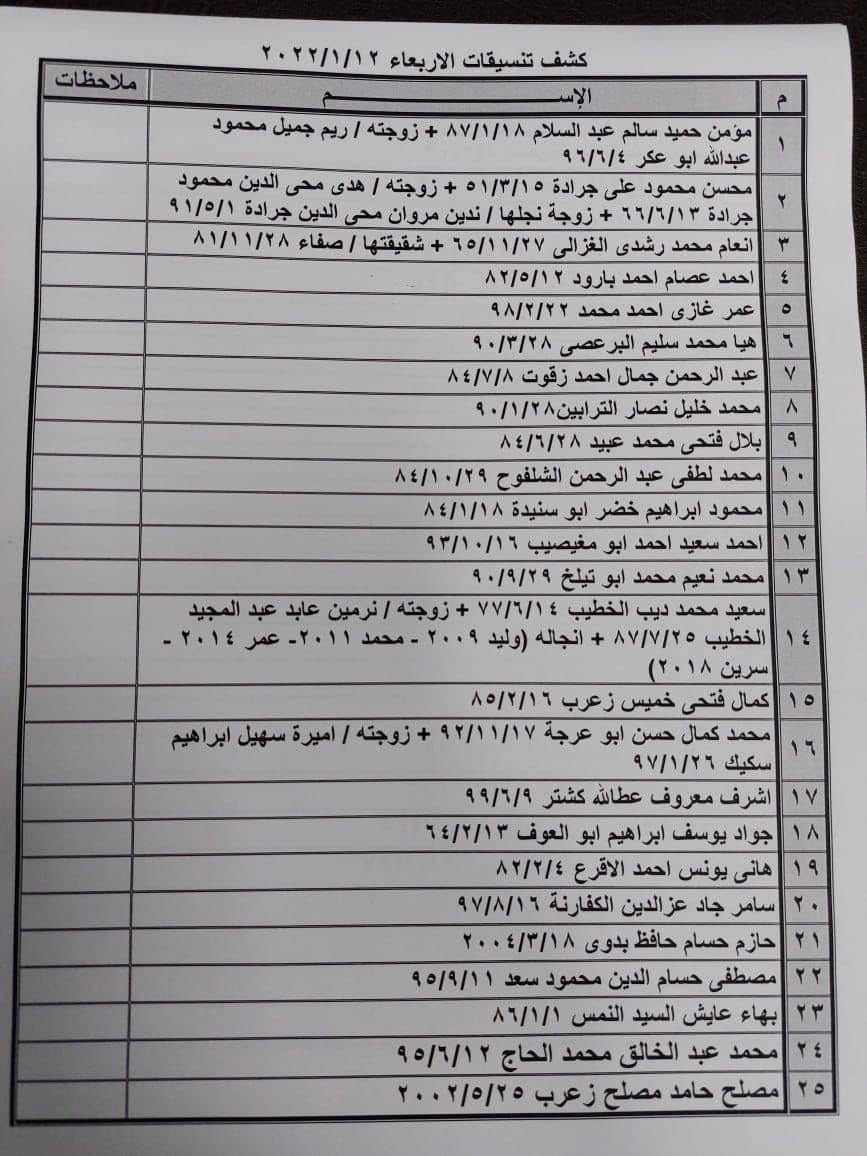 كشف تنسيقات الاربعاء ٢٠٢٢/١/١٢
م الإســـم ملاحظات
١ مؤمن حميد سالم عبد السلام ٨٧/١/١٨ + زوجته / ريم جميل محمود
عبدالله ابو عكر ٩٦/٦/٤
٢ محسن محمود على جرادة ٥١/٣/١٥ + زوجته / هدى محى الدين محمود
جرادة ٦٦/٦/١٣ + زوجة نجلها / ندين مروان محى الدين جرادة ٩١/٥/١
٣ انعام محمد رشدى الغزالى ٦٥/١١/٢٧ + شقيقتها / صفاء ٨١/١١/٢٨
٤ احمد عصام احمد بارود ٨٢/٥/١٢
٥ عمر غازى احمد محمد ٩٨/٢/٢٢
٦ هيا محمد سليم البرعصى ٩٠/٣/٢٨
٧ عبد الرحمن جمال احمد زقوت ٨٤/٧/٨
٨ محمد خليل نصار الترابين٩٠/١/٢٨
٩ بلال فتحى محمد عبيد ٨٤/٦/٢٨
١٠ محمد لطفى عبد الرحمن الشلفوح ٨٤/١٠/٢٩
١١ محمود ابراهيم خضر ابو سنيدة ٨٤/١/١٨
١٢ احمد سعيد احمد ابو مغيصيب ٩٣/١٠/١٦
١٣ محمد نعيم محمد ابو تيلخ ٩٠/٩/٢٩
١٤ سعيد محمد ديب الخطيب ٧٧/٦/١٤ + زوجته / نرمين عابد عبد المجيد
الخطيب ٨٧/٧/٢٥ + انجاله (وليد ٢٠٠٩ - محمد ٢٠١١- عمر ٢٠١٤ -
سرين ٢٠١٨)
١٥ كمال فتحى خميس زعرب ٨٥/٢/١٦
١٦ محمد كمال حسن ابو عرجة ٩٢/١١/١٧ + زوجته / اميرة سهيل ابراهيم
سكيك ٩٧/١/٢٦
١٧ اشرف معروف عطالله كشتر ٩٩/٦/٩
١٨ جواد يوسف ابراهيم ابو العوف ٦٤/٢/١٣
١٩ هانى يونس احمد الاقرع ٨٢/٢/٤
٢٠ سامر جاد عزالدين الكفارنة ٩٧/٨/١٦
٢١ حازم حسام حافظ بدوى ٢٠٠٤/٣/١٨
٢٢ مصطفى حسام الدين محمود سعد ٩٥/٩/١١
٢٣ بهاء عايش السيد النمس ٨٦/١/١
٢٤ محمد عبد الخالق محمد الحاج ٩٥/٦/١٢
٢٥ مصلح حامد مصلح زعرب ٢٠٠٢/٥/٢٥